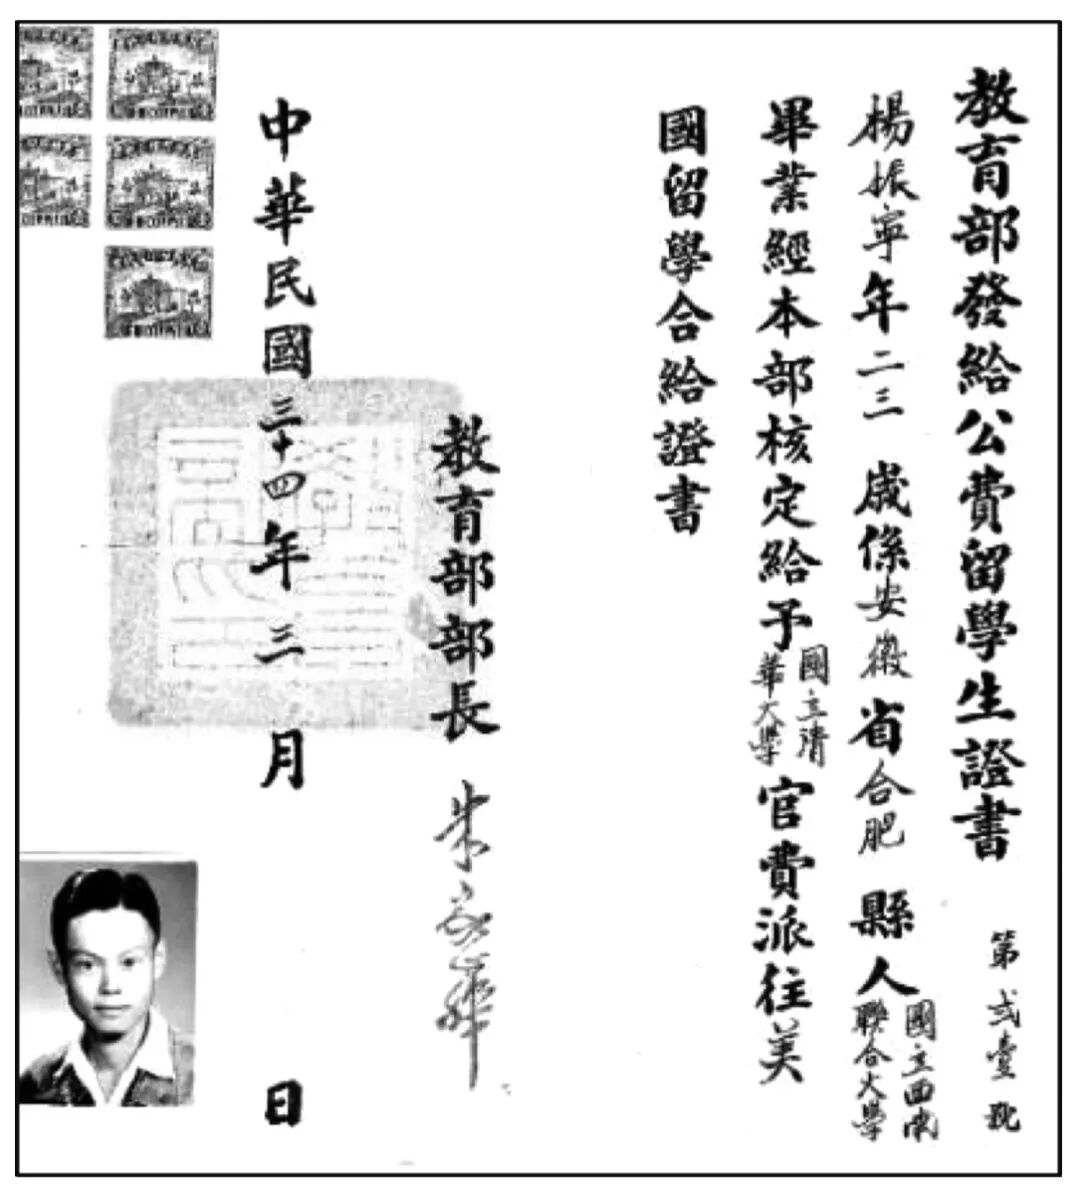 教育部發給公費留學生證書
第弍壹號
楊振寧年二三歲係安徽省合肥縣人國立西南聯合大學
畢業經本部核定給予國立清華大學官費派往美
國留學合給證書
教育部部長朱家驊
中華民國三十四年三月 日